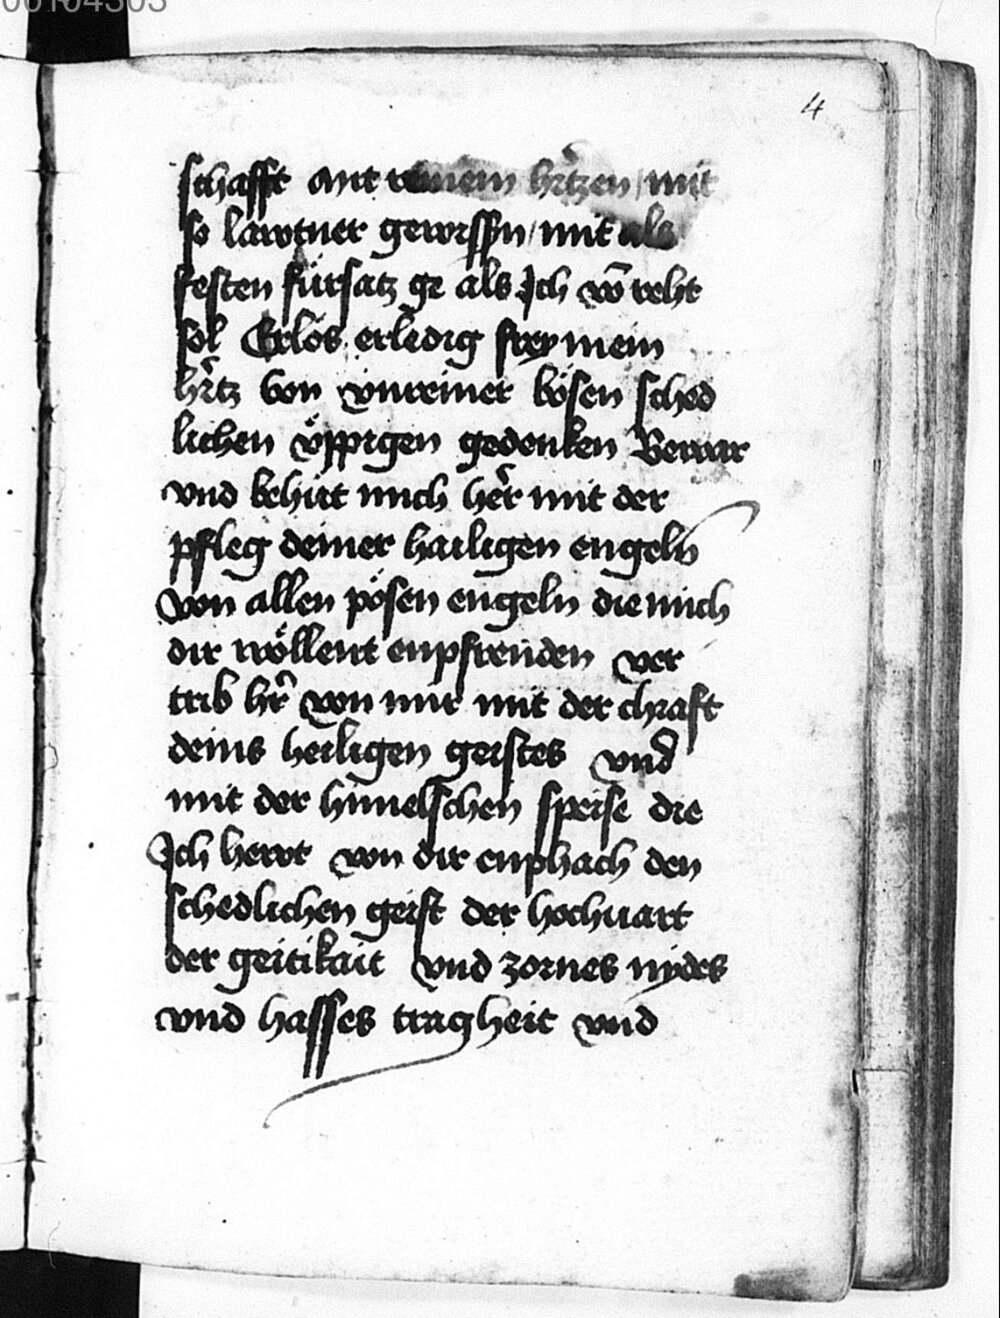 00104303
4
schafft mit reinem hertzen / mit
so lawtrer gewissn / mit als
festen fürsatz ge als Ich vō reht
sol Erlös erledig frey mein
hertz von vnreiner bösen sched
lichen vppigen gedenken Bewar
vnd behüt mich her mit der
pfleg deiner hailigen engeln
von allen pösen engeln die mich
dir wöllent enpfrenden ver
trib hr von mir mit der chraft
deins heiligen geistes vnd
mit der himelschen speise die
Ich hewt von dir enphach den
schedlichen geist der hochuart
der geitikait vnd zornes nydes
vnd hasses tragheit vnd